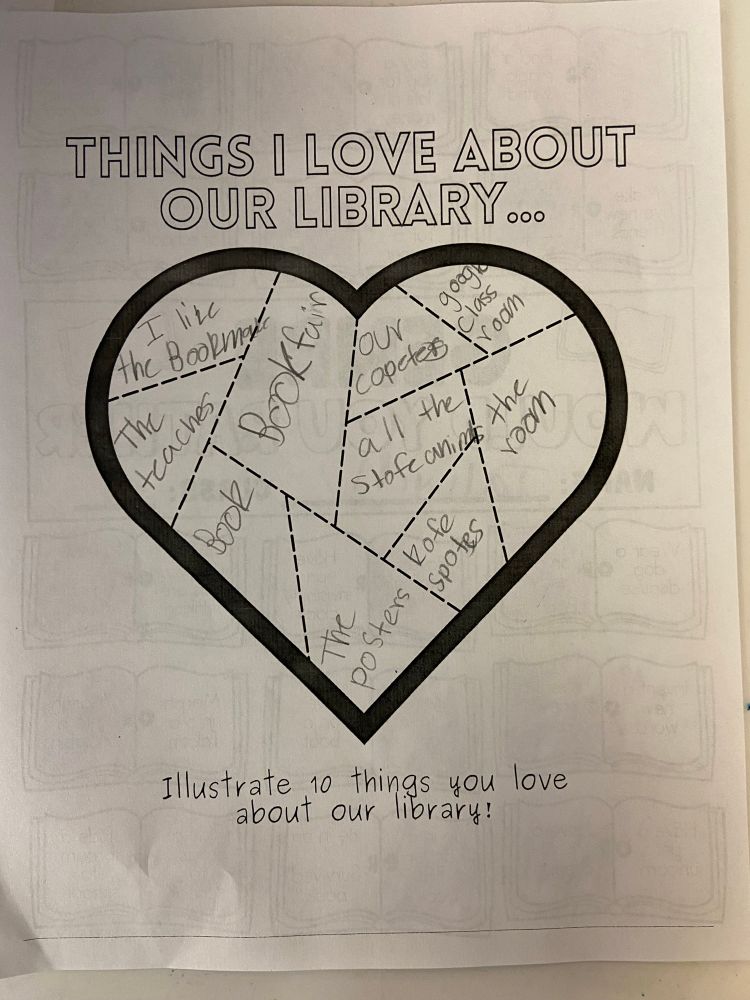 THINGS I LOVE ABOUT
OUR LIBRARY...
I like
the Bookmark
The
teaches
Book fair
our
copeters
google
class
room
all the
stofe animls
the
room
Book
kofe
spotes
The
posters
Illustrate 10 things you love
about our library!